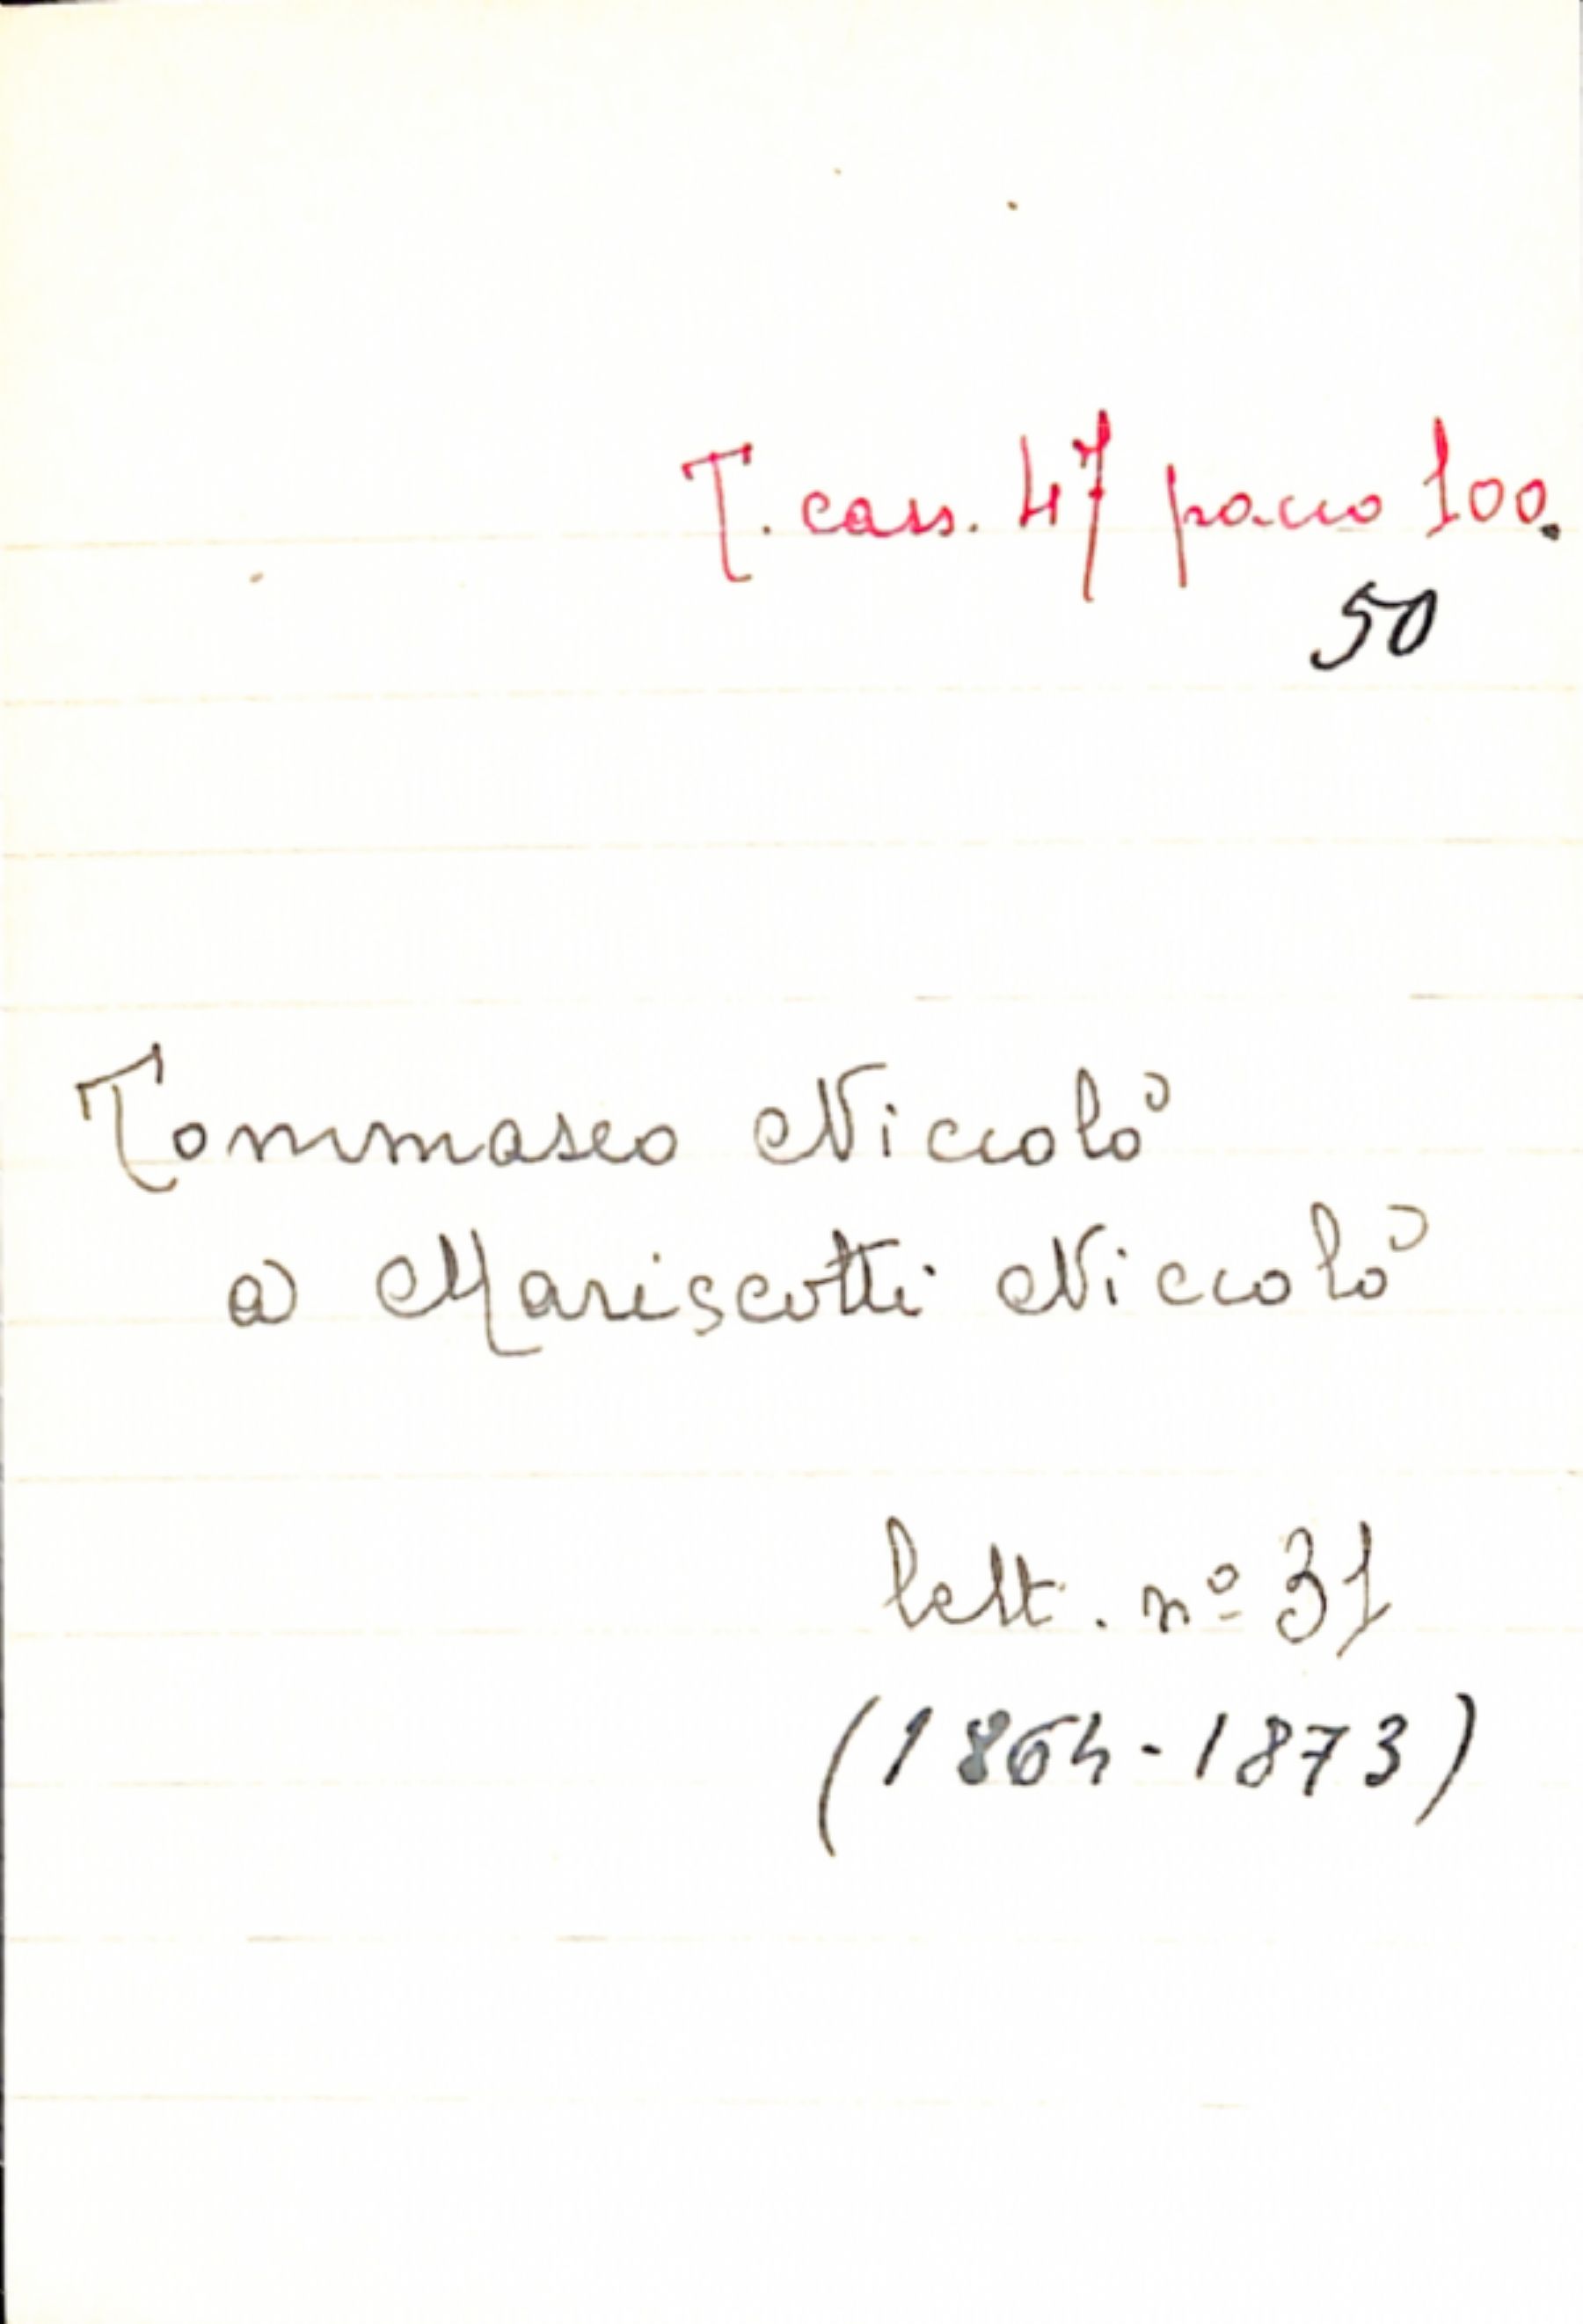 T. cass. 47 pacco 100.
50
Tommaseo Niccolò
a Mariscotti Niccolò
lett. nº 31
(1864-1873)